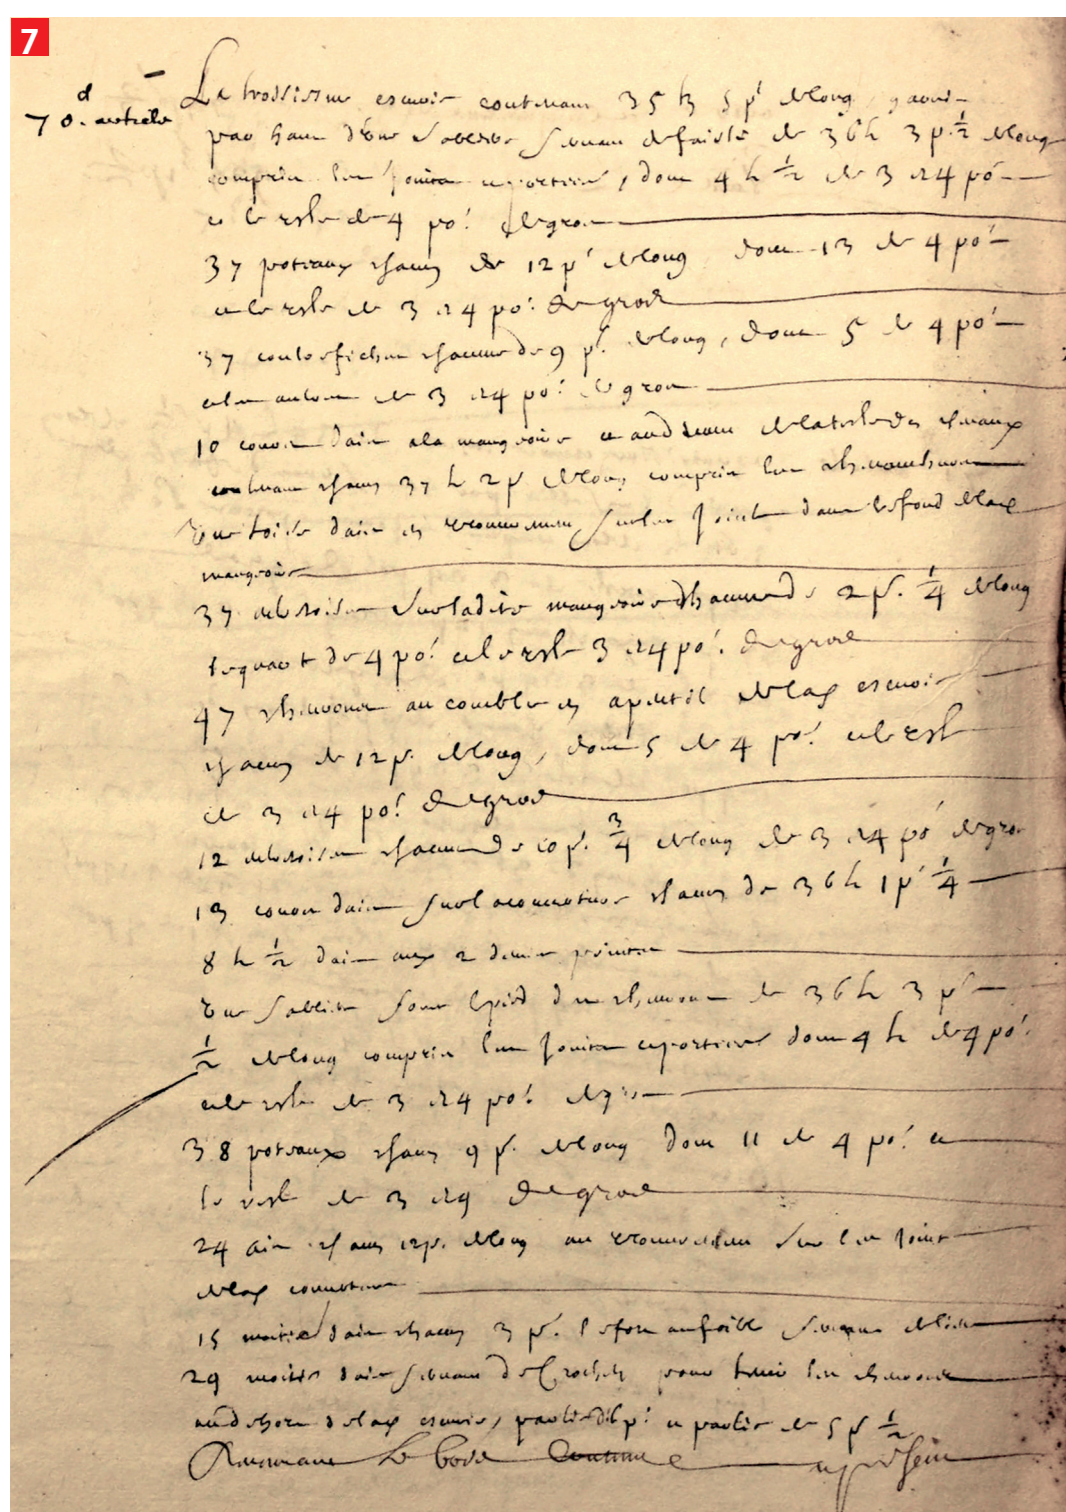 7
d
70. article
La troissiesme escurie contenant 35 t 5 p' de long, garni
par haut d'une sabliere servant de faiste de 36 t 3 p. 1/2 de long
comprin les joints et portées, dont 4 t 1/2 de 3 a 4 po
et le reste de 4 po! de gros
37 poteaux chacun de 12 p' de long dont 13 de 4 po
et le reste de 3 a 4 po! de gros
37 contrefiches chacune de 9 p. de long, dont 5 de 4 po
et les autres de 3 a 4 po! de gros
10 cours d'ais a la mangeoire et au devant de la teste des chevaux
contenant chacun 37 t 2 p de long comprin les
Une toise d'ais en recouvrement sur les joints dans le fond de lad
mangeoire
37 sur ladite mangeoire chacune de 2 p. 1/4 de long
le quart de 4 po! et le reste 3 a 4 po! de gros
47 chevrons au comble en apentil de lad escurie
chacun de 12 p. de long, dont 5 de 4 po! et le reste
de 3 a 4 po! de gros
12 chacune de 10 p. 3/4 de long de 3 a 4 po de gros
13 cours d'ais sur la couverture chacun de 36 t 1 p' 1/4
8 t 1/2 d'ais aux 2 demies pointes
Une sabliere sous le pied des chevrons de 36 t 3 p'
1/2 de long comprin les joints et portées dont 4 t de 4 po!
et le reste de 3 a 4 po! de gros
38 poteaux chacun 9 p. de long dont 11 de 4 po! et
le reste de 3 a 4 de gros
24 ais chacun 12 p. de long en recouvrement sur les joints
de lad couverture
15 moitiés d'ais chacun 3 p'. le fort au foible servant
29 moitiés d'ais servant de crochets pour tenir les chevrons
au dehors de lad escurie, partie de p! et partie de 5 p 1/2